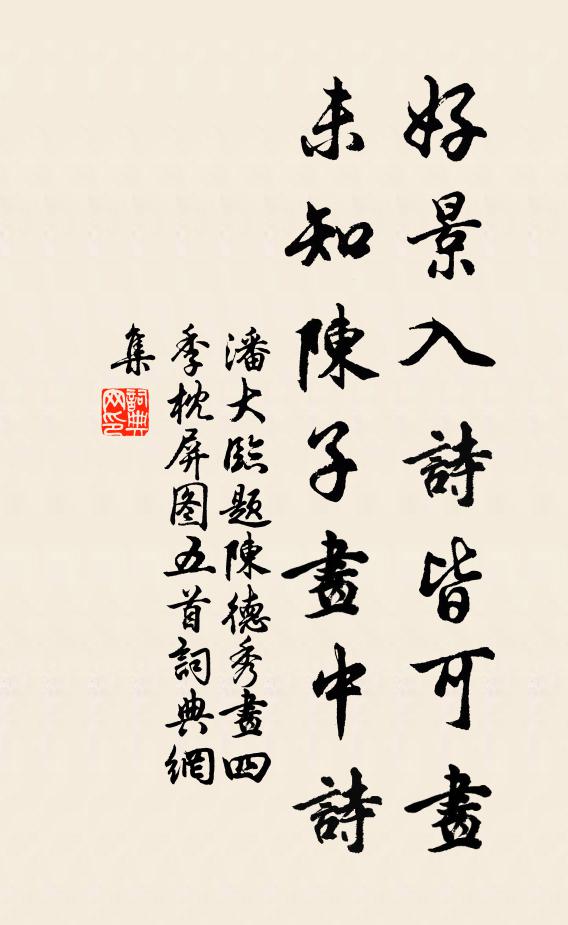 好景入詩皆可畫
未知陳子畫中詩
潘大臨題陳德秀畫四
季枕屏图五首詞典網
集
詞典网印